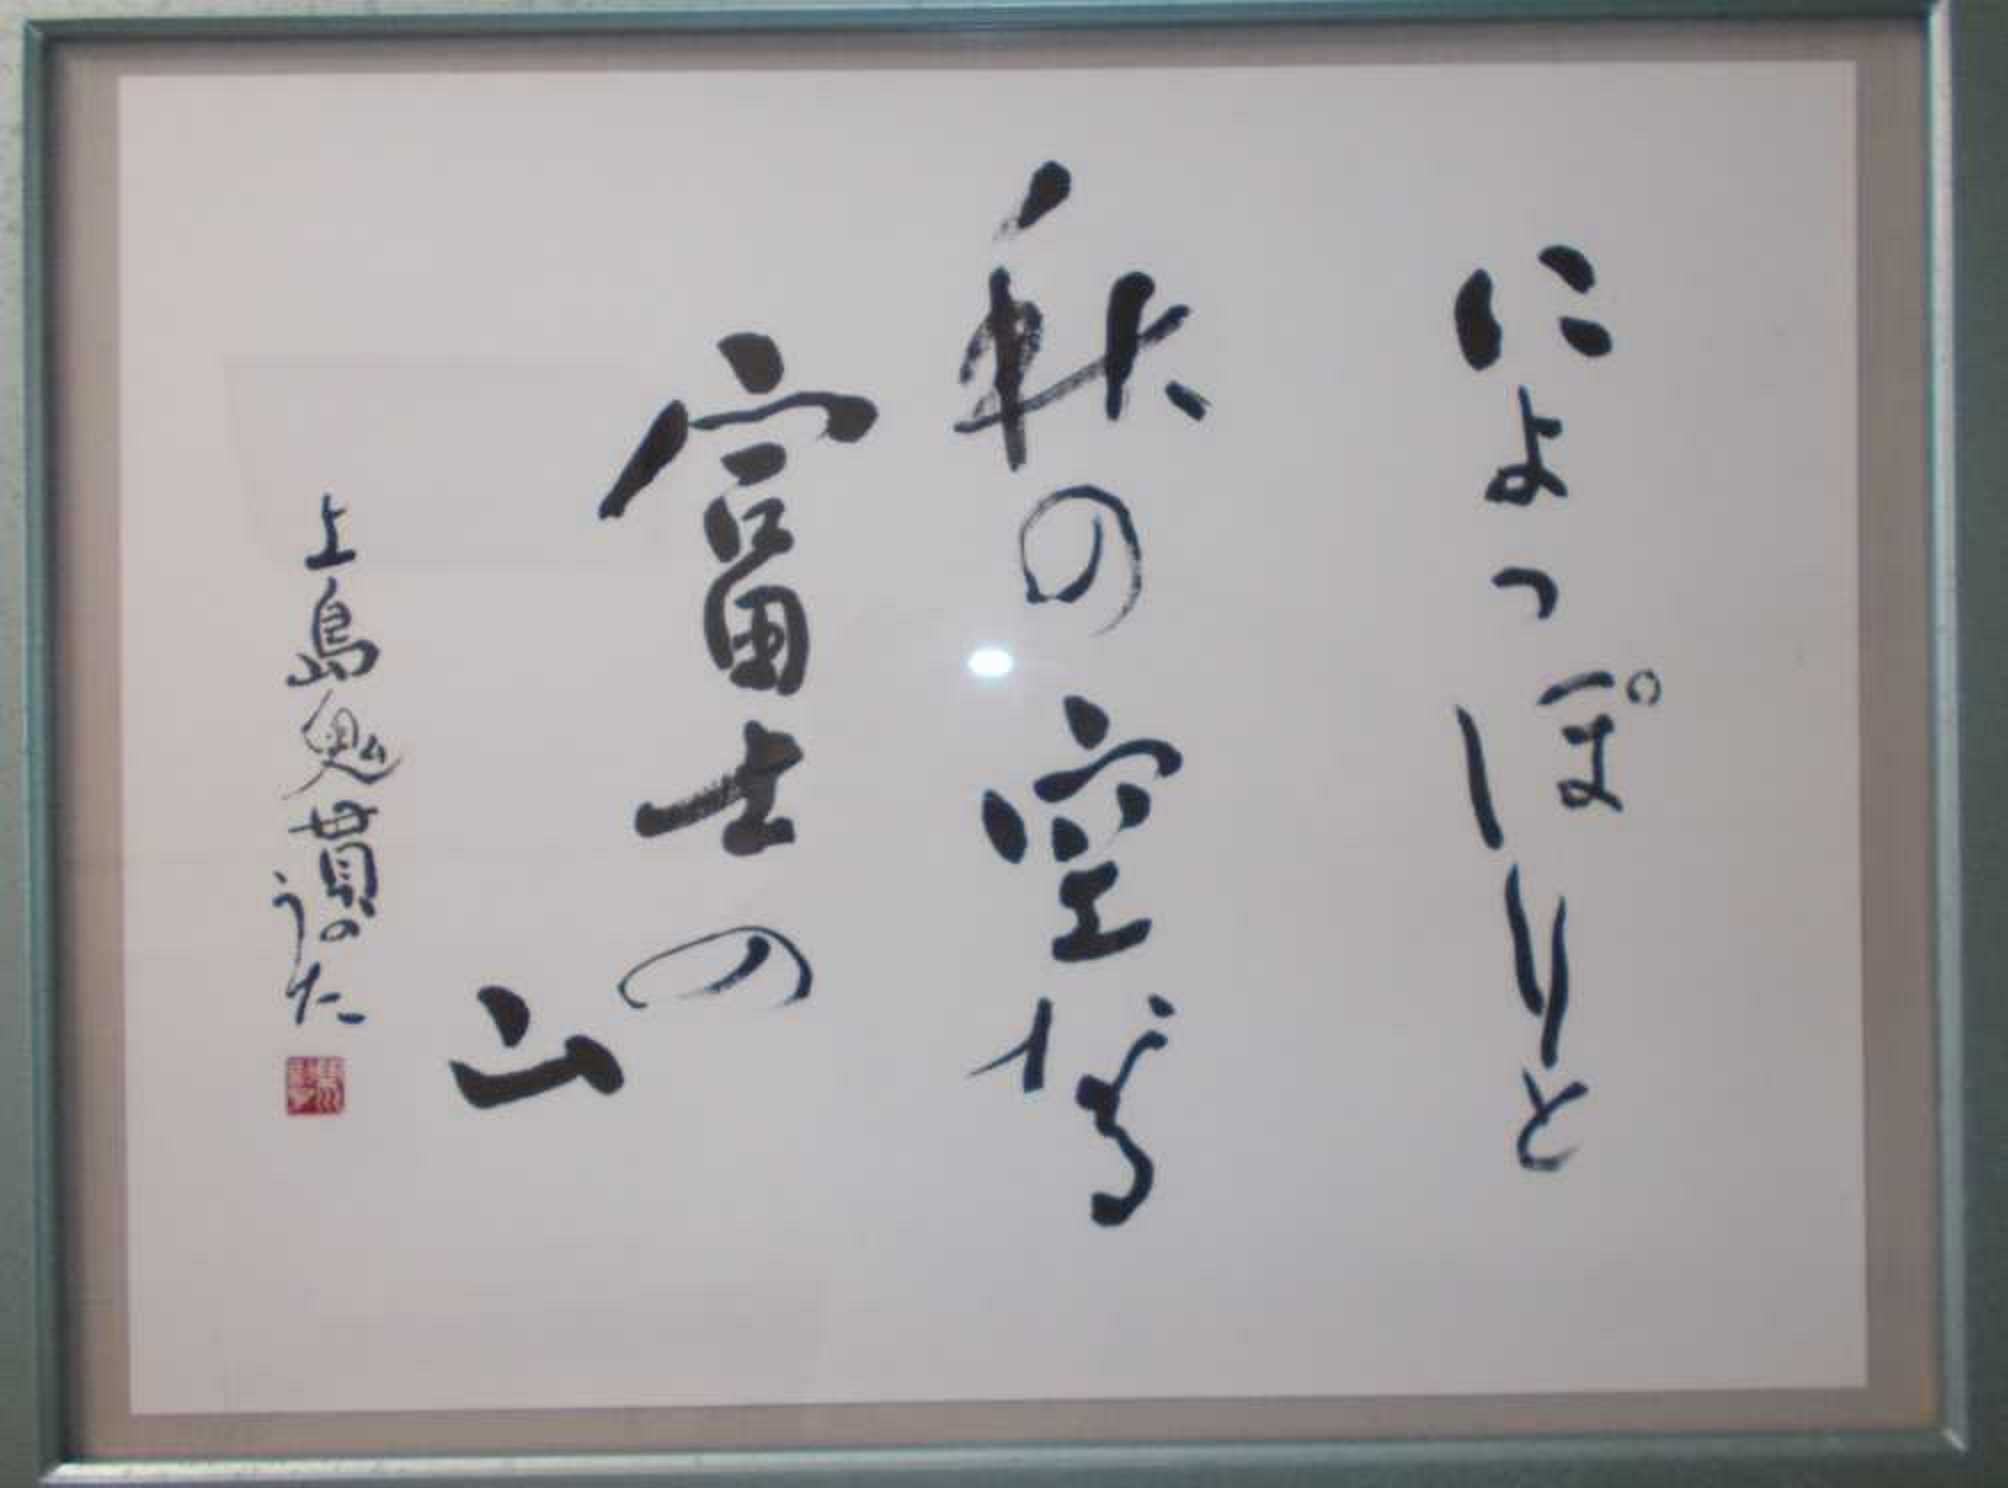 にょっぽりと
秋の空なる
富士の
山
上島鬼貫のうた